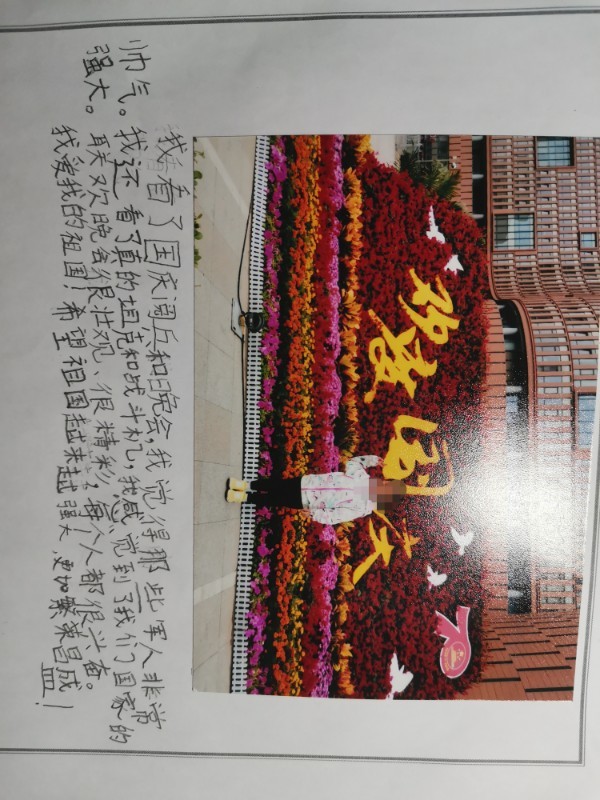 欢度国庆
70
我看了国庆阅兵和晚会,我觉得那些军人非常
帅气。我还看了真的坦克和战斗机,我感觉到了我们国家的
强大。联欢晚会很壮观、很精彩,每个人都很兴奋。
我爱我的祖国,希望祖国越来越强大,更加繁荣昌盛!